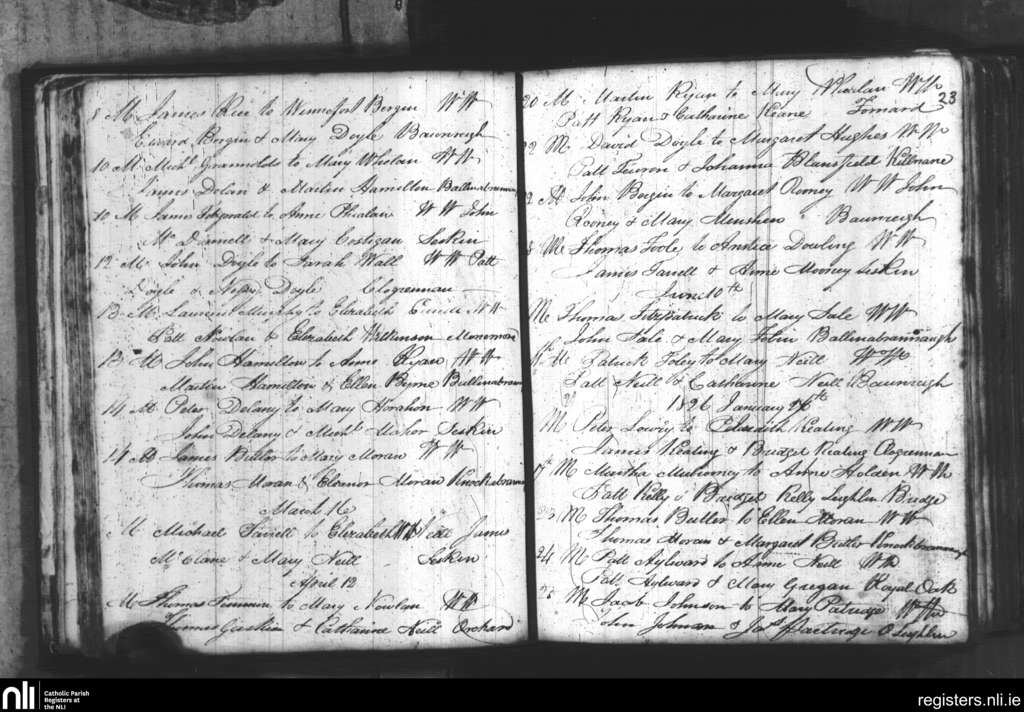 8 M James Rice to Winnefort Bergin WW
Edward Bergin & Mary Doyle Baunreigh
10 M Michl to Mary Whelan WW
Dolan & Martin Hamilton Ballinabranna
10 M James Fitzgerald to Anne Phialan WW John
Mc Donnell & Mary Costigan Seskin
12 M John Doyle to Sarah Wall WW Patt
Doyle & Doyle Clogrennan
13 M Laurence Murphy to Elizabeth WW
Patt Nowlan & Elizabeth Wilkinson
13 M John Hamilton to Anne Ryan WW
Martin Hamilton & Ellen Byrne Ballinabranna
14 M Peter Delany to Mary Horahon WW
John Delany & Maher Seskin
14 M James Butler to Mary Moran WW
Thomas Moran & Eleanor Moran Knockabranna
March 16
M Michael Farrell to Elizabeth Neill WW James
Mc Clane & Mary Neill Seskin
April 12
M Thomas to Mary Nowlan WW
& Catharine Neill Orchard
23
20 M Martin Ryan to Mary Whelan WW
Patt Ryan & Catharine Keane
22 M David Doyle to Margaret Hughes WW
Patt & Johanna Blansfield Killnane
M John Bergin to Margaret Rooney WW John
Rooney & Mary Baunreigh
M Thomas Toole to Dowling WW
James Farrell & Anne Mooney Seskin
June 10th
M Thomas Fitzpatrick to Mary Tale WW
John Tale & Mary Tobin
M Patrick Foley to Mary Neill WW
Patt Neill & Catharine Neill Baunreigh
1826 January
M Peter Lowry to Keating WW
James Keating & Bridget Keating Clogrennan
17th M to Anne Holden WW
Patt Kelly & Bridget Kelly Leighlin Bridge
23 M Thomas Butler to Ellen Moran WW
Thomas Moran & Margaret Butler Knockbranna
24 M Patt Ayleward to Anne Neill WW
Patt Ayleward & Mary Gregan Royal Oak
M Jacob Johnson to Mary Patridge WW
John Johnson & Jas Partridge O Leighlin
nli
Catholic Parish
Registers at
the NLI
registers.nli.ie